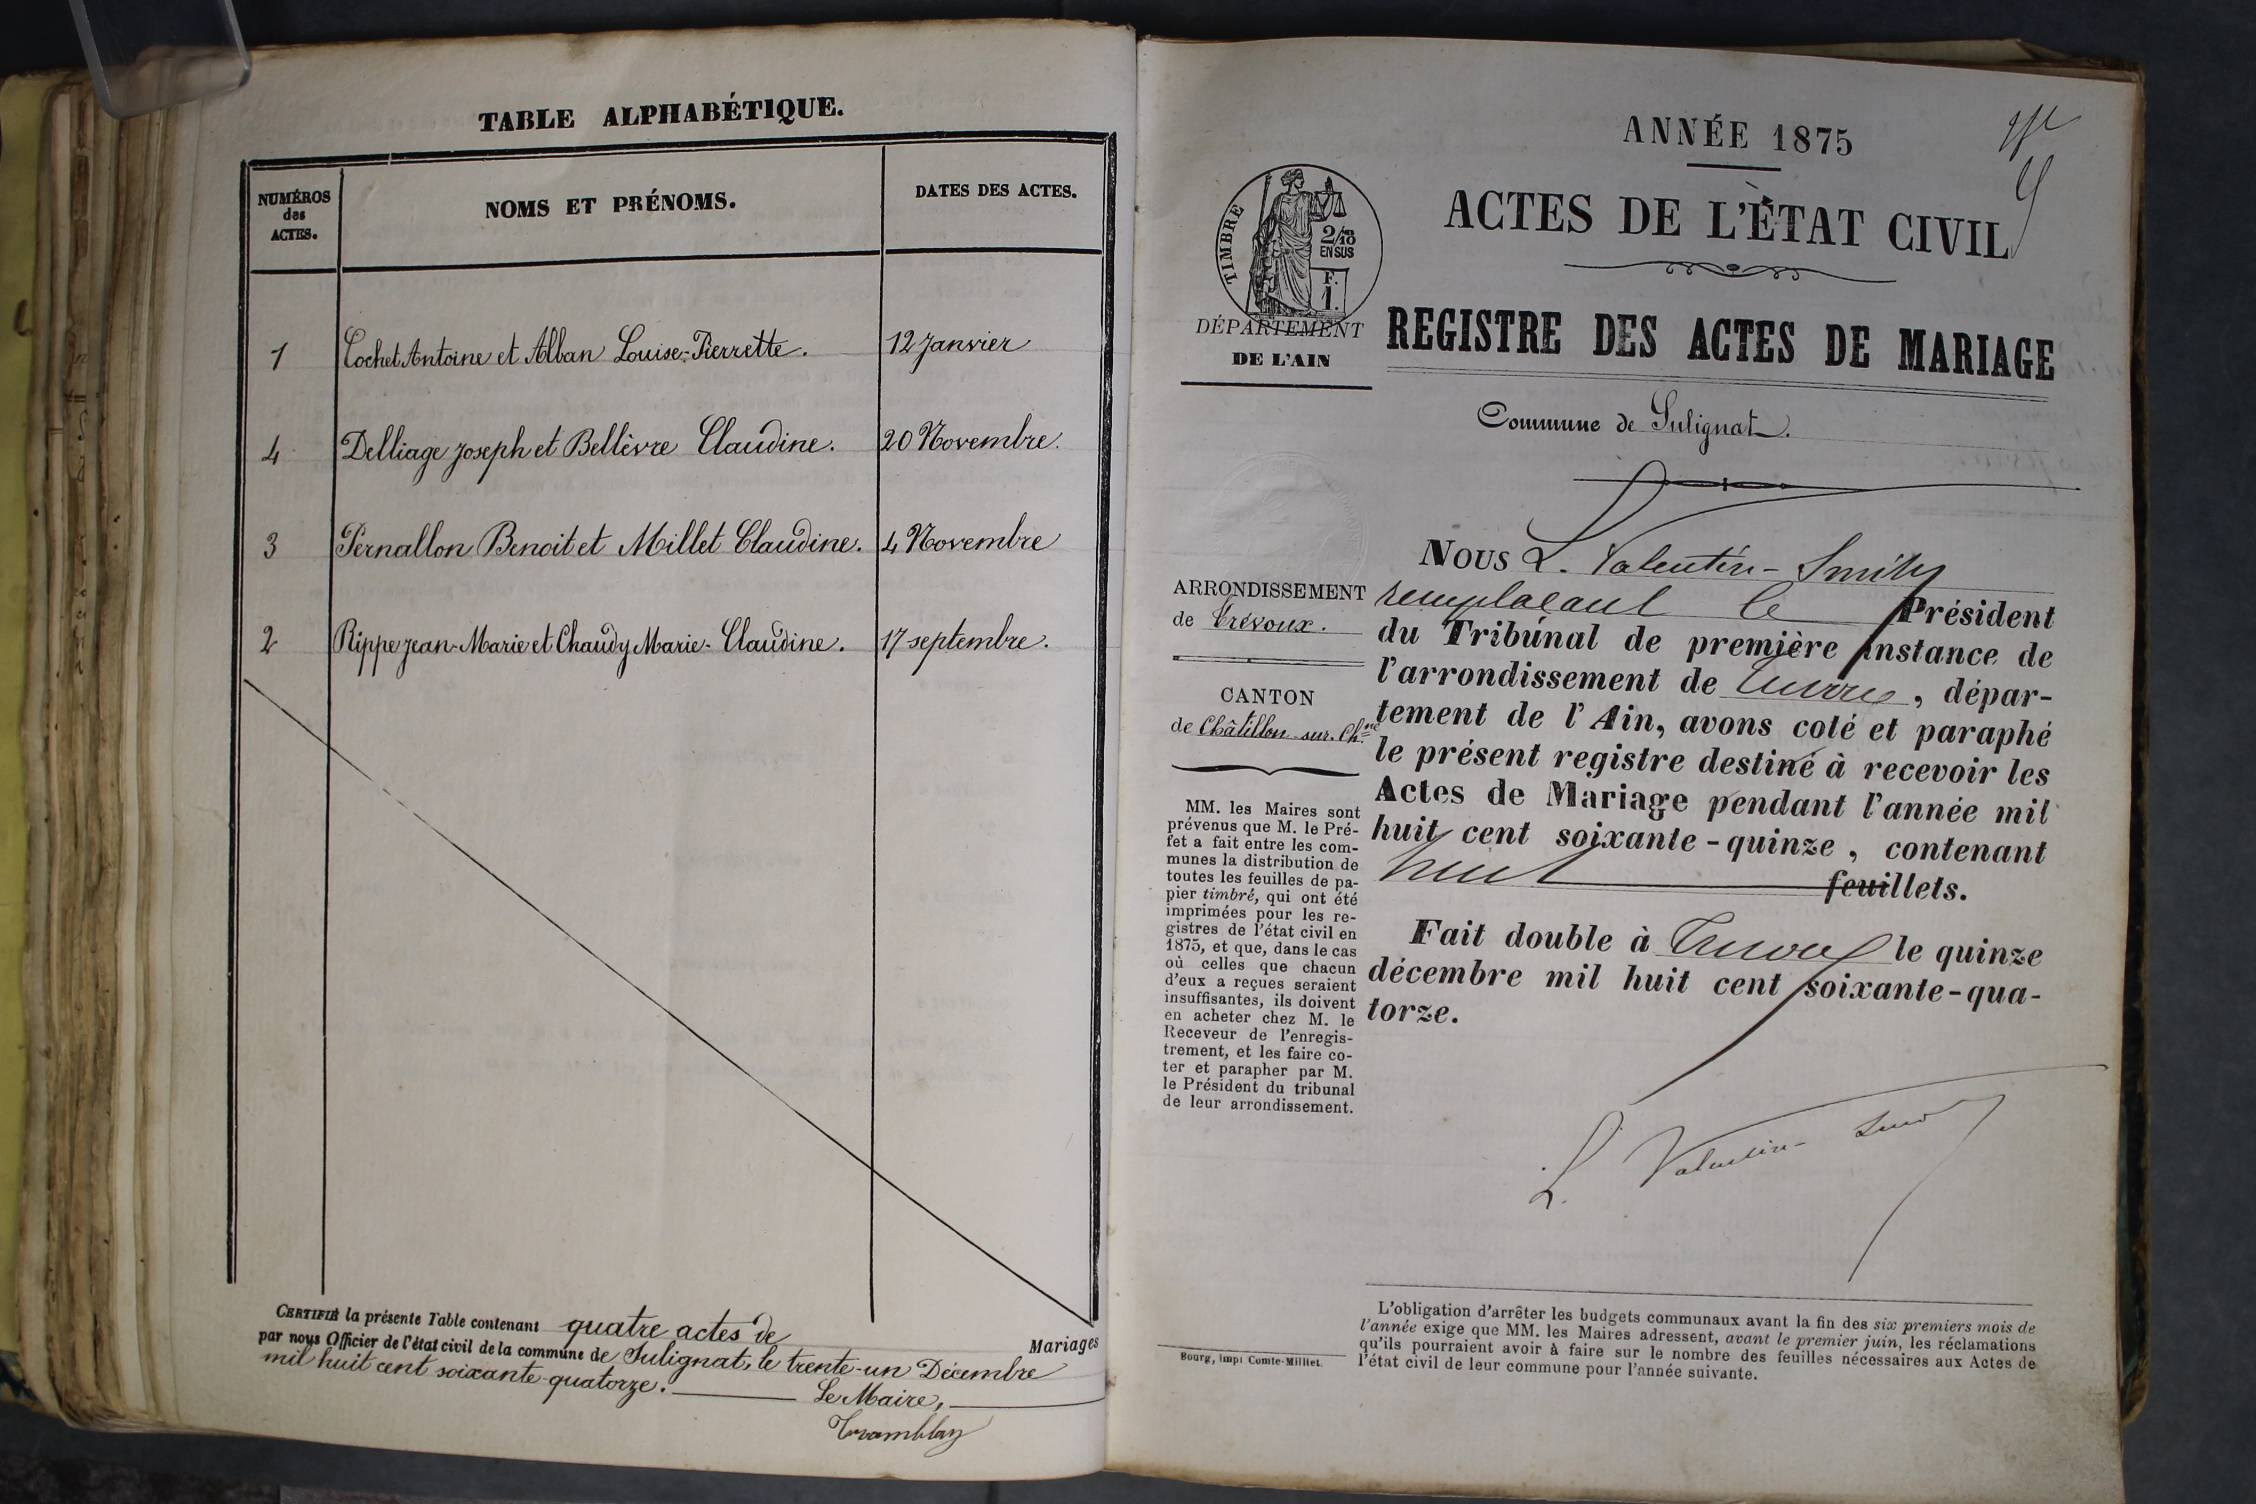 TABLE ALPHABÉTIQUE.
NUMÉROS
des
ACTES.
NOMS ET PRÉNOMS.
DATES DES ACTES.
1 Cochet Antoine et Alban Louise-Pierrette. 12 Janvier
4 Delliage Joseph et Bellèvre Claudine. 20 Novembre.
3 Pernallon Benoit et Millet Claudine. 4 Novembre
2 Rippe Jean-Marie et Chaudy Marie-Claudine. 17 septembre.
CERTIFIÉ la présente Table contenant quatre actes de Mariages
par nous Officier de l'état civil de la commune de Sulignat, le trente-un Décembre
mil huit cent soixante-quatorze. Le Maire,
Tramblay
ANNÉE 1875
ACTES DE L'ÉTAT CIVIL
TIMBRE
2/10
EN SUS
F.
1.
DÉPARTEMENT
DE L'AIN
REGISTRE DES ACTES DE MARIAGE
Commune de Sulignat.
ARRONDISSEMENT
de Trévoux.
CANTON
de Châtillon-sur-Ch.ne
MM. les Maires sont
prévenus que M. le Pré-
fet a fait entre les com-
munes la distribution de
toutes les feuilles de pa-
pier timbré, qui ont été
imprimées pour les re-
gistres de l'état civil en
1875, et que, dans le cas
où celles que chacun
d'eux a reçues seraient
insuffisantes, ils doivent
en acheter chez M. le
Receveur de l'enregis-
trement, et les faire co-
ter et parapher par M.
le Président du tribunal
de leur arrondissement.
NOUS L. Valentin-Smith
remplaçant le Président
du Tribunal de première instance de
l'arrondissement de Trévoux, dépar-
tement de l'Ain, avons coté et paraphé
le présent registre destiné à recevoir les
Actes de Mariage pendant l'année mil
huit cent soixante-quinze, contenant
huit feuillets.
Fait double à Trévoux le quinze
décembre mil huit cent soixante-qua-
torze.
L. Valentin-Smith
Bourg, impi Comte-Milliet.
L'obligation d'arrêter les budgets communaux avant la fin des six premiers mois de
l'année exige que MM. les Maires adressent, avant le premier juin, les réclamations
qu'ils pourraient avoir à faire sur le nombre des feuilles nécessaires aux Actes de
l'état civil de leur commune pour l'année suivante.